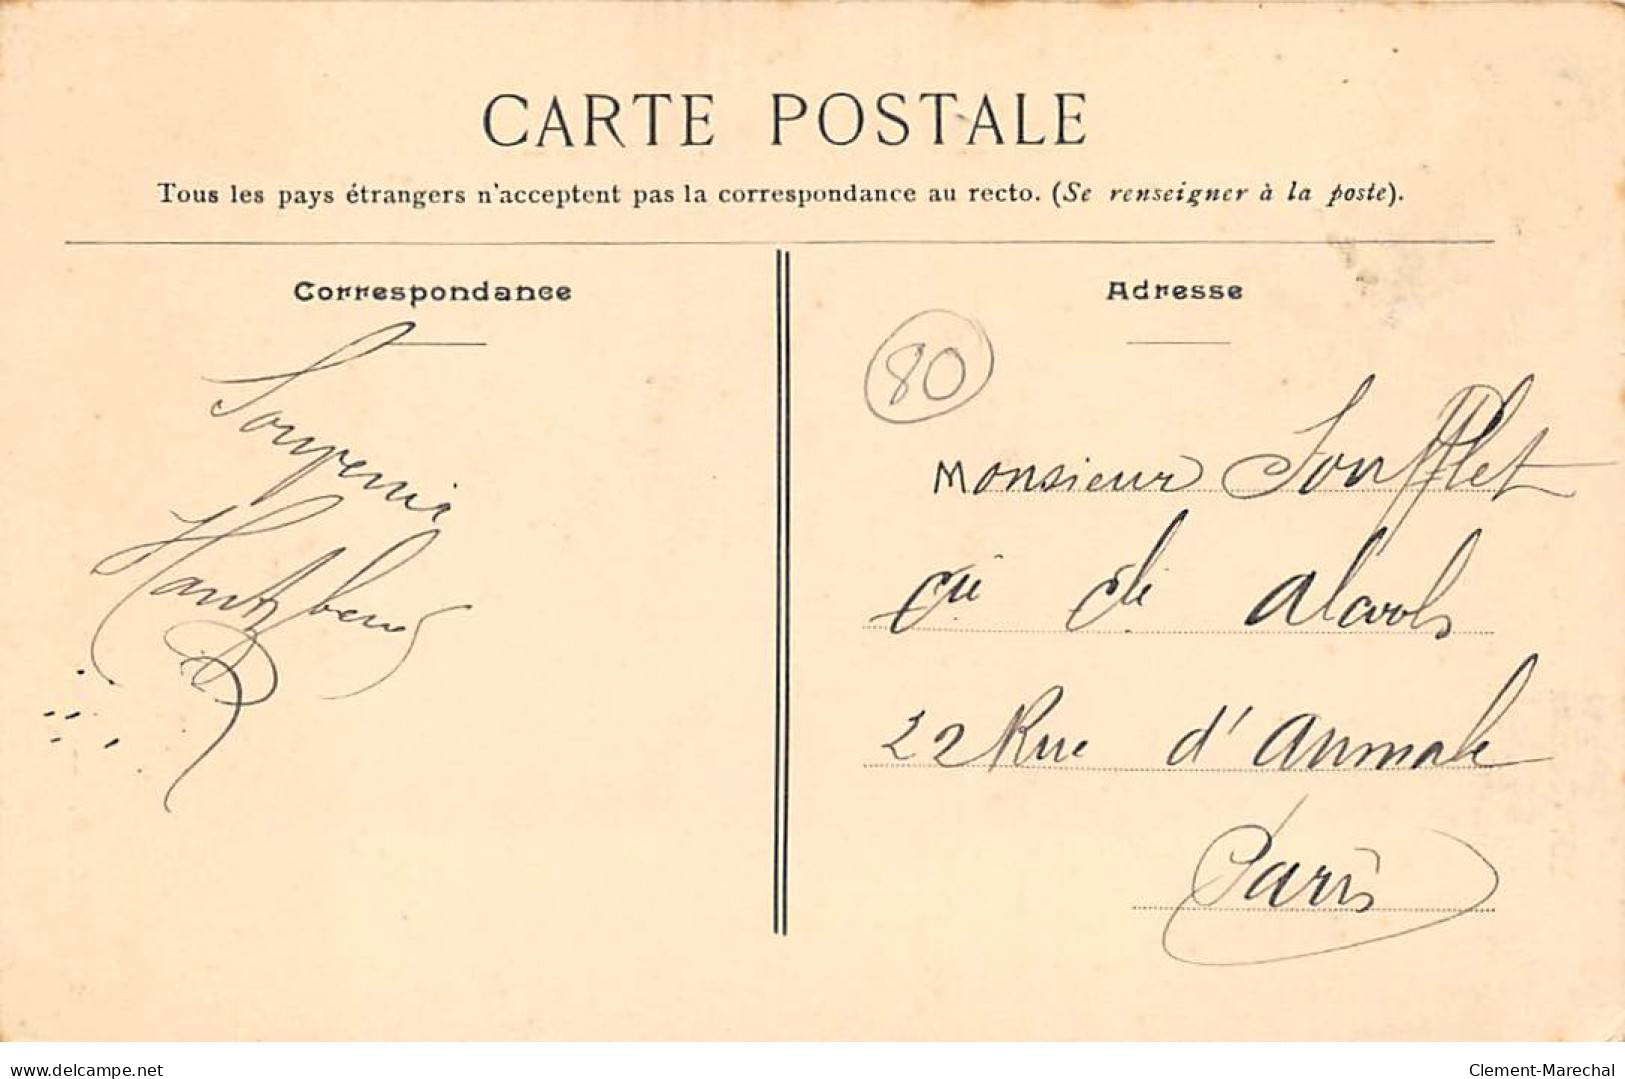 CARTE POSTALE
Tous les pays étrangers n'acceptent pas la correspondance au recto. (Se renseigner à la poste).
Correspondance
Souvenir
Adresse
80
Monsieur Soufflet
Cie de alcools
22 Rue d'Aumale
Paris
www.delcampe.net
Clement-Marechal